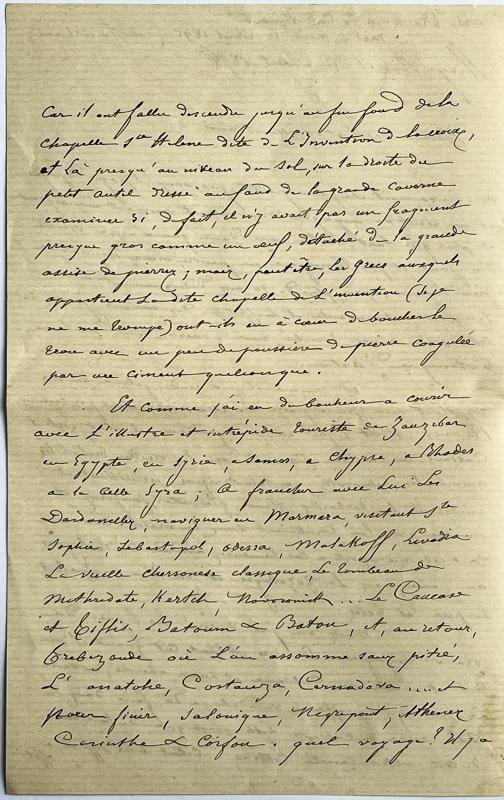 Car il eut fallu descendre jusqu'au fin fond de la
Chapelle Ste Helene dite de L'Invention de la croix,
et Là presqu'au niveau du sol, sur la droite du
petit autel dressé au fond de la grande caverne
examiner si, de fait, il n'y avait pas un fragment
presque gros comme un œuf, détaché de la grande
assise de pierres ; mais, peut être, les Grecs auxquels
appartient La dite chapelle de L'invention (si je
ne me trompe) ont-ils eu à cœur de boucher le
trou avec un peu de poussière de pierre coagulée
par un ciment quelconque.
Et comme j'ai eu du bonheur a courir
avec L'illustre et intrépide touriste de Zanzibar
en Egypte, en Syrie, a Samos, a Chypre, a Rhodes
a la belle Syra ; a franchir avec Lui Les
Dardanelles, naviguer en Marmara, visitant Ste
Sophie, Sebastopol, Odessa, Malakoff, Livadia
La vieille chersonese classique, Le tombeau de
Mithridate, Kertch, Novorossisk ... Le Caucase
et Tiflis, Batoum & Batou, et, au retour,
Trebizonde où L'on assomme sans pitié,
L'anatolie, Costanza, Cernadova ..... et
pour finir, Salonique, Negrepont, Athenes
Corinthe & Corfou. quel voyage ! Il y a